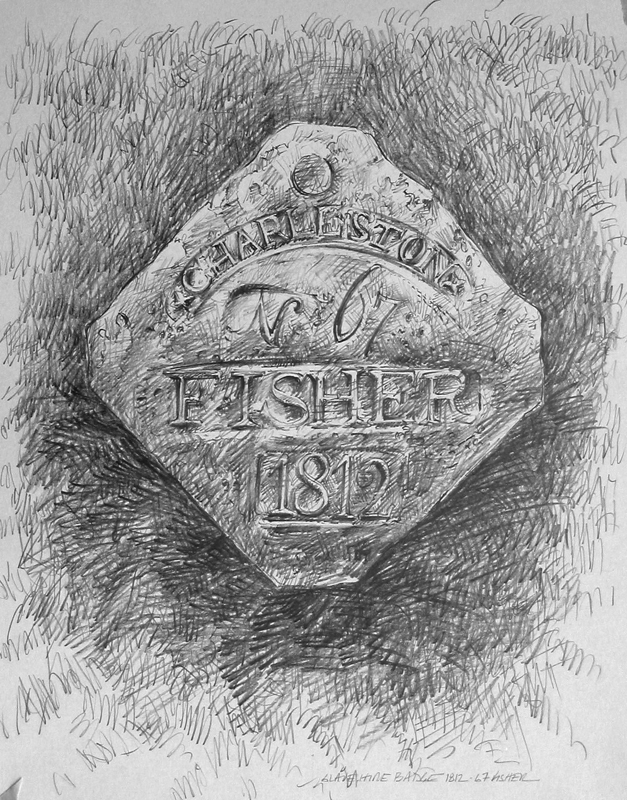 CHARLESTON
No 67
FISHER
1812
SLAVE HIRE BADGE 1812 - 67 FISHER